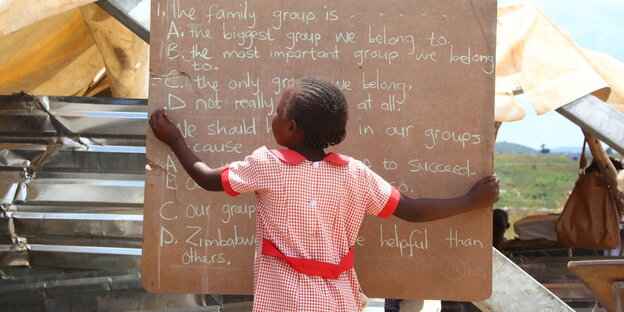 1. The family group is - - - - -
A. the biggest group we belong to.
B. the most important group we belong
to.
C. the only we belong,
D not really at all.
We should in our groups
because
A to succeed.
B
C. our
D. Zimbabwe helpful than
others.